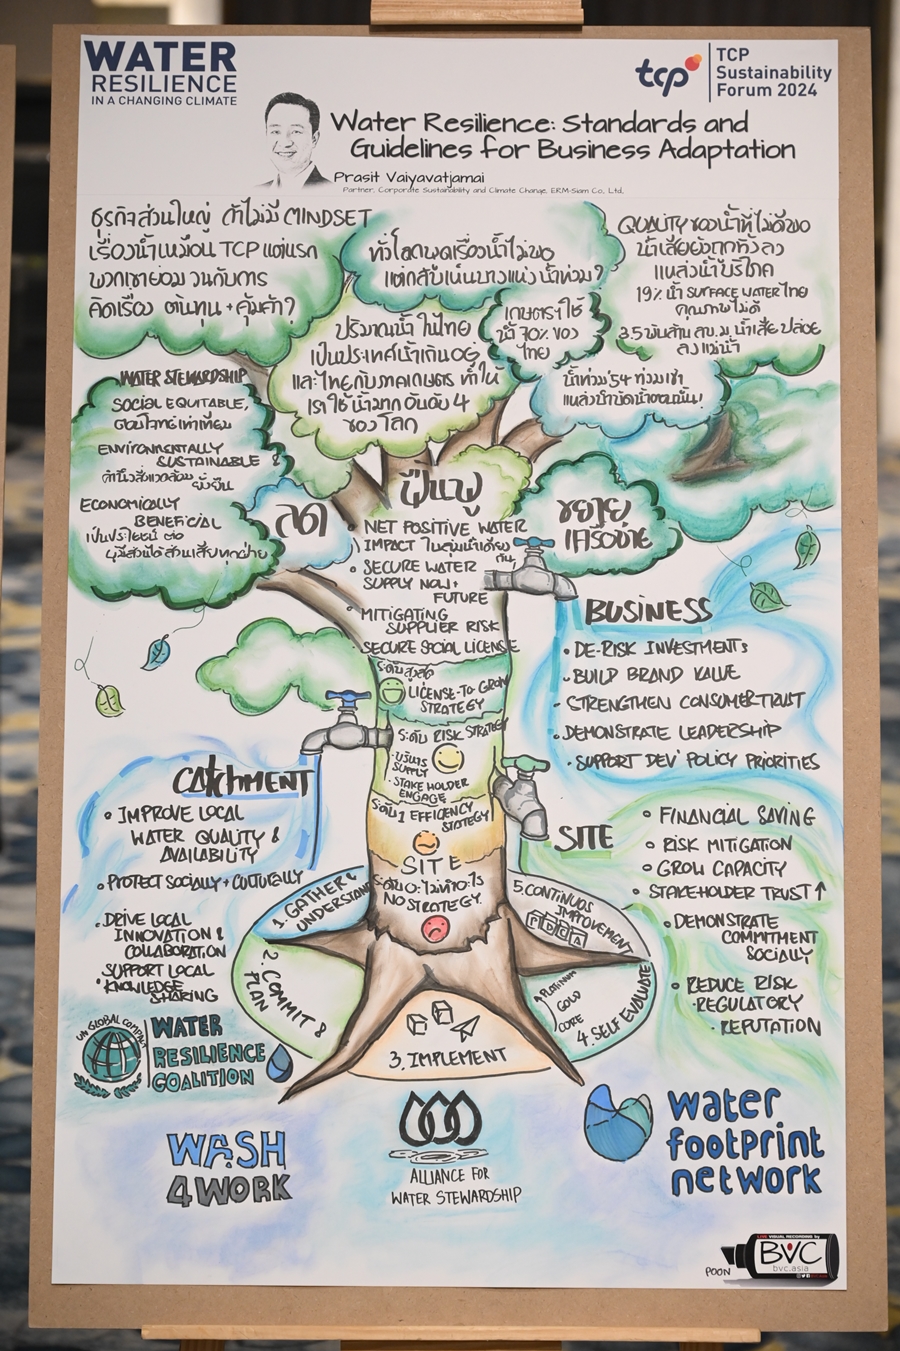 WATER
RESILIENCE
IN A CHANGING CLIMATE
tcp
TCP
Sustainability
Forum 2024
Water Resilience: Standards and
Guidelines for Business Adaptation
Prasit Vaiyavatjamai
Partner, Corporate Sustainability and Climate Change, ERM-Siam Co., Ltd.
ธุรกิจส่วนใหญ่ ถ้าไม่มี MINDSET
เรื่องน้ำเหมือน TCP แต่แรก
พวกเขาย่อม วนกับการ
คิดเรื่อง ต้นทุน + คุ้มค่า?
ทั่วโลกพูดเรื่องน้ำไม่พอ
แต่กลับเห็นบางแห่ง น้ำท่วม?
QUALITY ของน้ำที่ไม่ดีพอ
น้ำเสียยังถูกทิ้งลง
แหล่งน้ำบริโภค
19% น้ำ SURFACE WATER ไทย
คุณภาพไม่ดี
3.5 พันล้าน ลบ.ม. น้ำเสีย ปล่อย
ลงแม่น้ำ
ปริมาณน้ำ ในไทย
เป็นประเทศน้ำเกินอยู่
และไทยกับภาคเกษตร ทำให้
เราใช้น้ำมากอันดับ 4
ของโลก
เกษตรฯใช้
น้ำ 70% ของ
ไทย
น้ำท่วม'54 ท่วมเข้า
แหล่งบำบัดน้ำตอนนั้น!
WATER STEWARDSHIP
SOCIAL EQUITABLE,
ตอบโจทย์เท่าเทียม
ENVIRONMENTALLY
SUSTAINABLE &
คำนึงสิ่งแวดล้อม
ยั่งยืน
ECONOMICALLY
BENEFICIAL
เป็นประโยชน์ ต่อ
ผู้มีส่วนได้ส่วนเสียทุกฝ่าย
ลด
ฟื้นฟู
ขยาย
เครือข่าย
• NET POSITIVE WATER
IMPACT ในลุ่มน้ำเดียว
กัน
• SECURE WATER
SUPPLY NOW +
FUTURE
• MITIGATING
SUPPLIER RISK
• SECURE SOCIAL LICENSE
ระดับสูงสุด
LICENSE-TO-GROW
STRATEGY
ระดับ RISK STRATEGY
• บริหาร
SUPPLY
• STAKE HOLDER
ENGAGE
ระดับ 1 EFFICIENCY
STRATEGY
SITE
ระดับ 0: ไม่ทำอะไร
NO STRATEGY
BUSINESS
• DE-RISK INVESTMENTs
• BUILD BRAND VALUE
• STRENGTHEN CONSUMER TRUST
• DEMONSTRATE LEADERSHIP
• SUPPORT DEV' POLICY PRIORITIES
CATCHMENT
• IMPROVE LOCAL
WATER QUALITY &
AVAILABILITY
• PROTECT SOCIALLY + CULTURALLY
• DRIVE LOCAL
INNOVATION &
COLLABORATION
SUPPORT LOCAL
• KNOWLEDGE
SHARING
SITE
• FINANCIAL SAVING
• RISK MITIGATION
• GROW CAPACITY
• STAKEHOLDER TRUST ↑
• DEMONSTRATE
COMMITMENT
SOCIALLY
• REDUCE RISK
• REGULATORY
• REPUTATION
1. GATHER &
UNDERSTAND
2. COMMIT &
PLAN
3. IMPLEMENT
PLATINUM
GOLD
CORE
4. SELF EVALUATE
5. CONTINUOS
IMPROVEMENT
P D C A
UN GLOBAL COMPACT
WATER
RESILIENCE
COALITION
WASH
4WORK
ALLIANCE FOR
WATER STEWARDSHIP
water
footprint
network
POON
LIVE VISUAL RECORDING by
BVC
bvc.asia